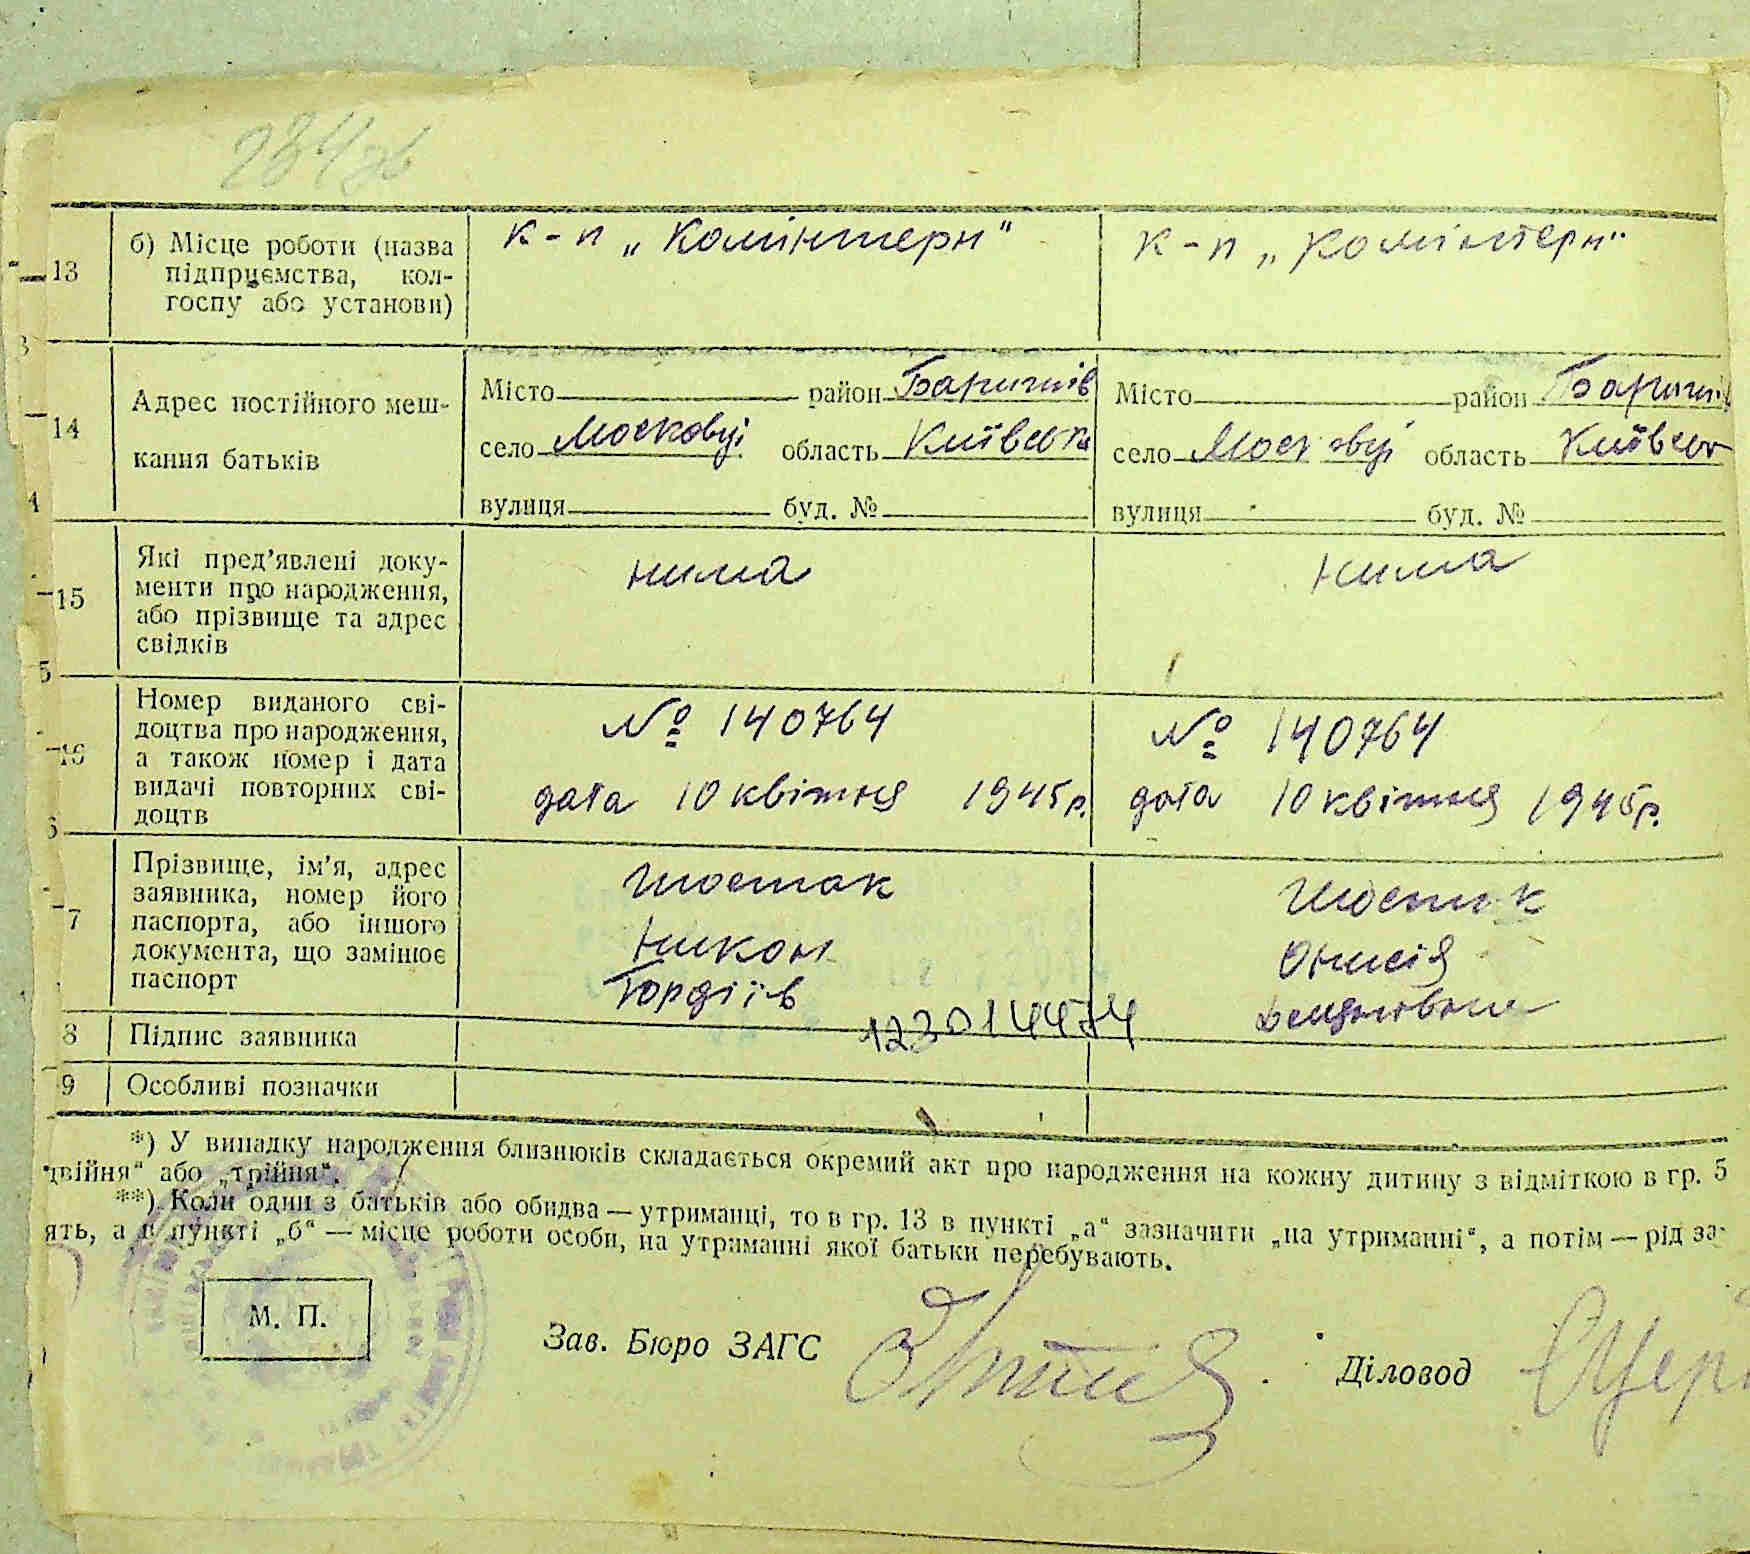 284 зв
13
б) Місце роботи (назва
підприємства, кол-
госпу або установи)
к-п „Комінтерн"
к-п „Комінтерн"
14
Адрес постійного меш-
кання батьків
Місто район Баришів
село Московці область Київська
вулиця буд. №
Місто район Баришів
село Московці область Київськ
вулиця буд. №
15
Які пред'явлені доку-
менти про народження,
або прізвище та адрес
свідків
нима
нима
16
Номер виданого сві-
доцтва про народження,
а також номер і дата
видачі повторних сві-
доцтв
№ 140764
дата 10 квітня 1945р.
№ 140764
дата 10 квітня 1945р.
7
Прізвище, ім'я, адрес
заявника, номер його
паспорта, або іншого
документа, що замінює
паспорт
Шостак
Никон
Гордіїв
Шостак
Онисія
8
Підпис заявника
1230144574
9
Особливі позначки
*) У випадку народження близнюків складається окремий акт про народження на кожну дитину з відміткою в гр. 5
двійня" або „трійня".
**) Коли один з батьків або обидва — утриманці, то в гр. 13 в пункті „а" зазначити „на утриманні", а потім — рід за-
ять, а в пункті „б" — місце роботи особи, на утриманні якої батьки перебувають.
М. П.
Зав. Бюро ЗАГС
Діловод